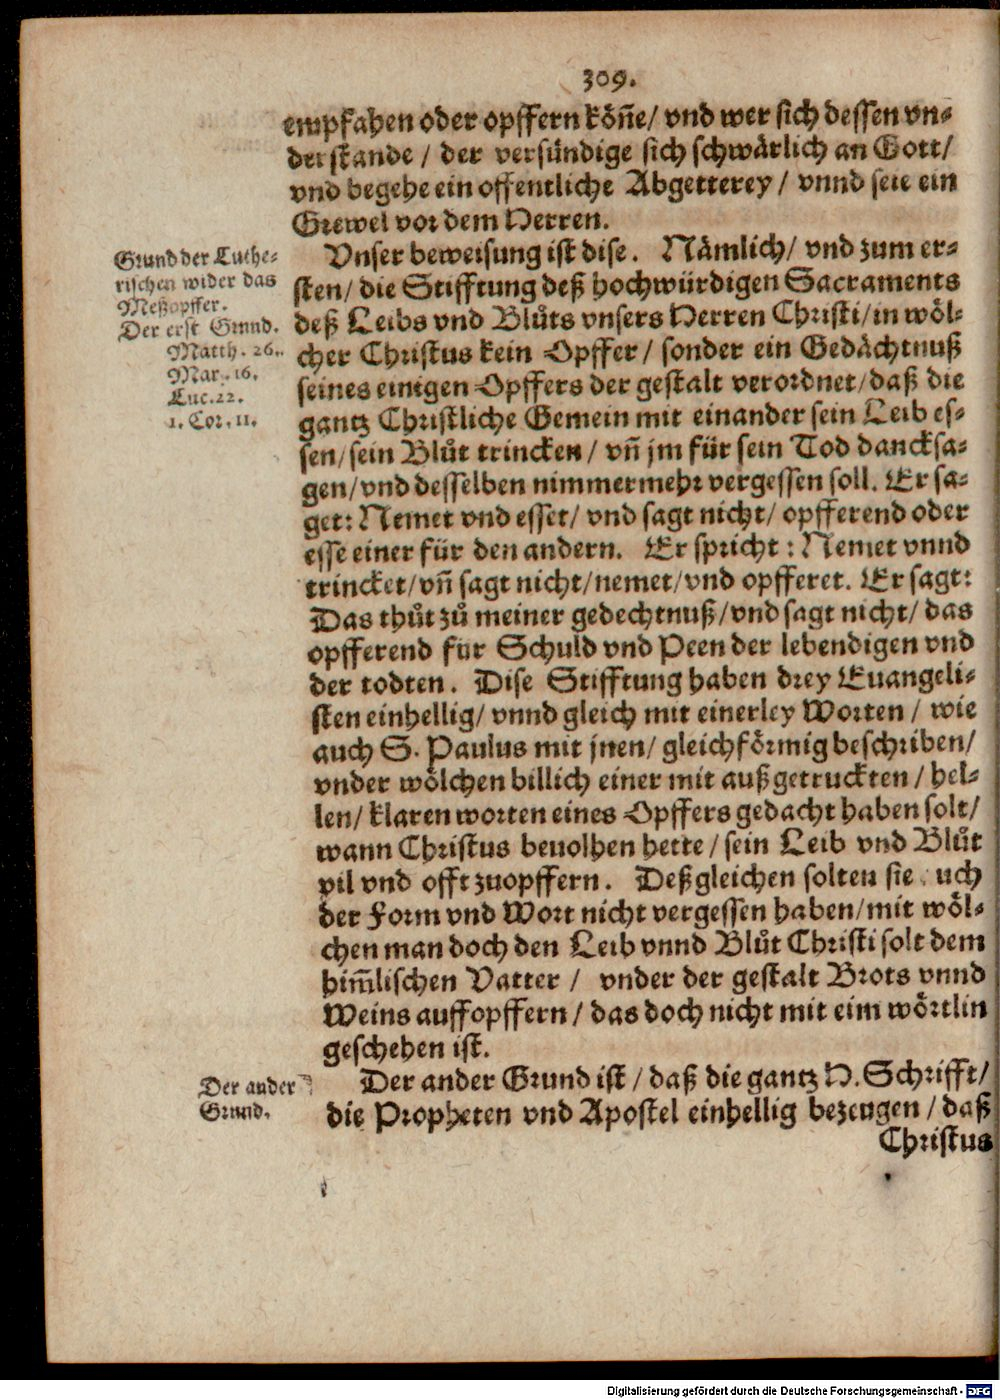 309.
empfahen oder opffern köñe/ vnd wer sich dessen vn-
derstande / der versündige sich schwärlich an Gott/
vnd begehe ein offentliche Abgetterey / vnnd seie ein
Grewel vor dem Herren.
Grund der Luthe-
rischen wider das
Meßopffer.
Der erst Grund.
Matth. 26.
Mar. 16.
Luc. 22.
1. Cor. 11.
Vnser beweisung ist dise. Nämlich/ vnd zum er-
sten/ die Stifftung deß hochwürdigen Sacraments
deß Leibs vnd Blůts vnsers Herren Christi/ in wöl-
cher Christus kein Opffer/ sonder ein Gedächtnuß
seines einigen Opffers der gestalt verordnet/ daß die
gantz Christliche Gemein mit einander sein Leib es-
sen/ sein Blůt trincken / vñ jm für sein Tod dancksa-
gen/ vnd desselben nimmermehr vergessen soll. Er sa-
get: Nemet vnd esset/ vnd sagt nicht/ opfferend oder
esse einer für den andern. Er spricht : Nemet vnnd
trincket/ vñ sagt nicht/ nemet/ vnd opfferet. Er sagt:
Das thůt zů meiner gedechtnuß/ vnd sagt nicht/ das
opfferend für Schuld vnd Peen der lebendigen vnd
der todten. Dise Stifftung haben drey Euangeli-
sten einhellig/ vnnd gleich mit einerley Worten / wie
auch S. Paulus mit jnen/ gleichförmig beschriben/
vnder wölchen billich einer mit außgetruckten / hel-
len/ klaren worten eines Opffers gedacht haben solt/
wann Christus beuolhen hette/ sein Leib vnd Blůt
vil vnd offt zuopffern. Deßgleichen solten sie uch
der Form vnd Wort nicht vergessen haben/ mit wöl-
chen man doch den Leib vnnd Blůt Christi solt dem
him̃lischen Vatter / vnder der gestalt Brots vnnd
Weins auffopffern / das doch nicht mit eim wörtlin
geschehen ist.
Der ander
Grund.
Der ander Grund ist / daß die gantz H. Schrifft/
die Propheten vnd Apostel einhellig bezeugen / daß
Christus
Digitalisierung gefördert durch die Deutsche Forschungsgemeinschaft - DFG